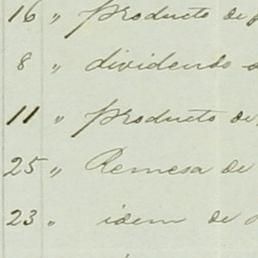 16 " producto de
8 " dividendo
11 " producto de
25 " Remesa de
23 " idem de